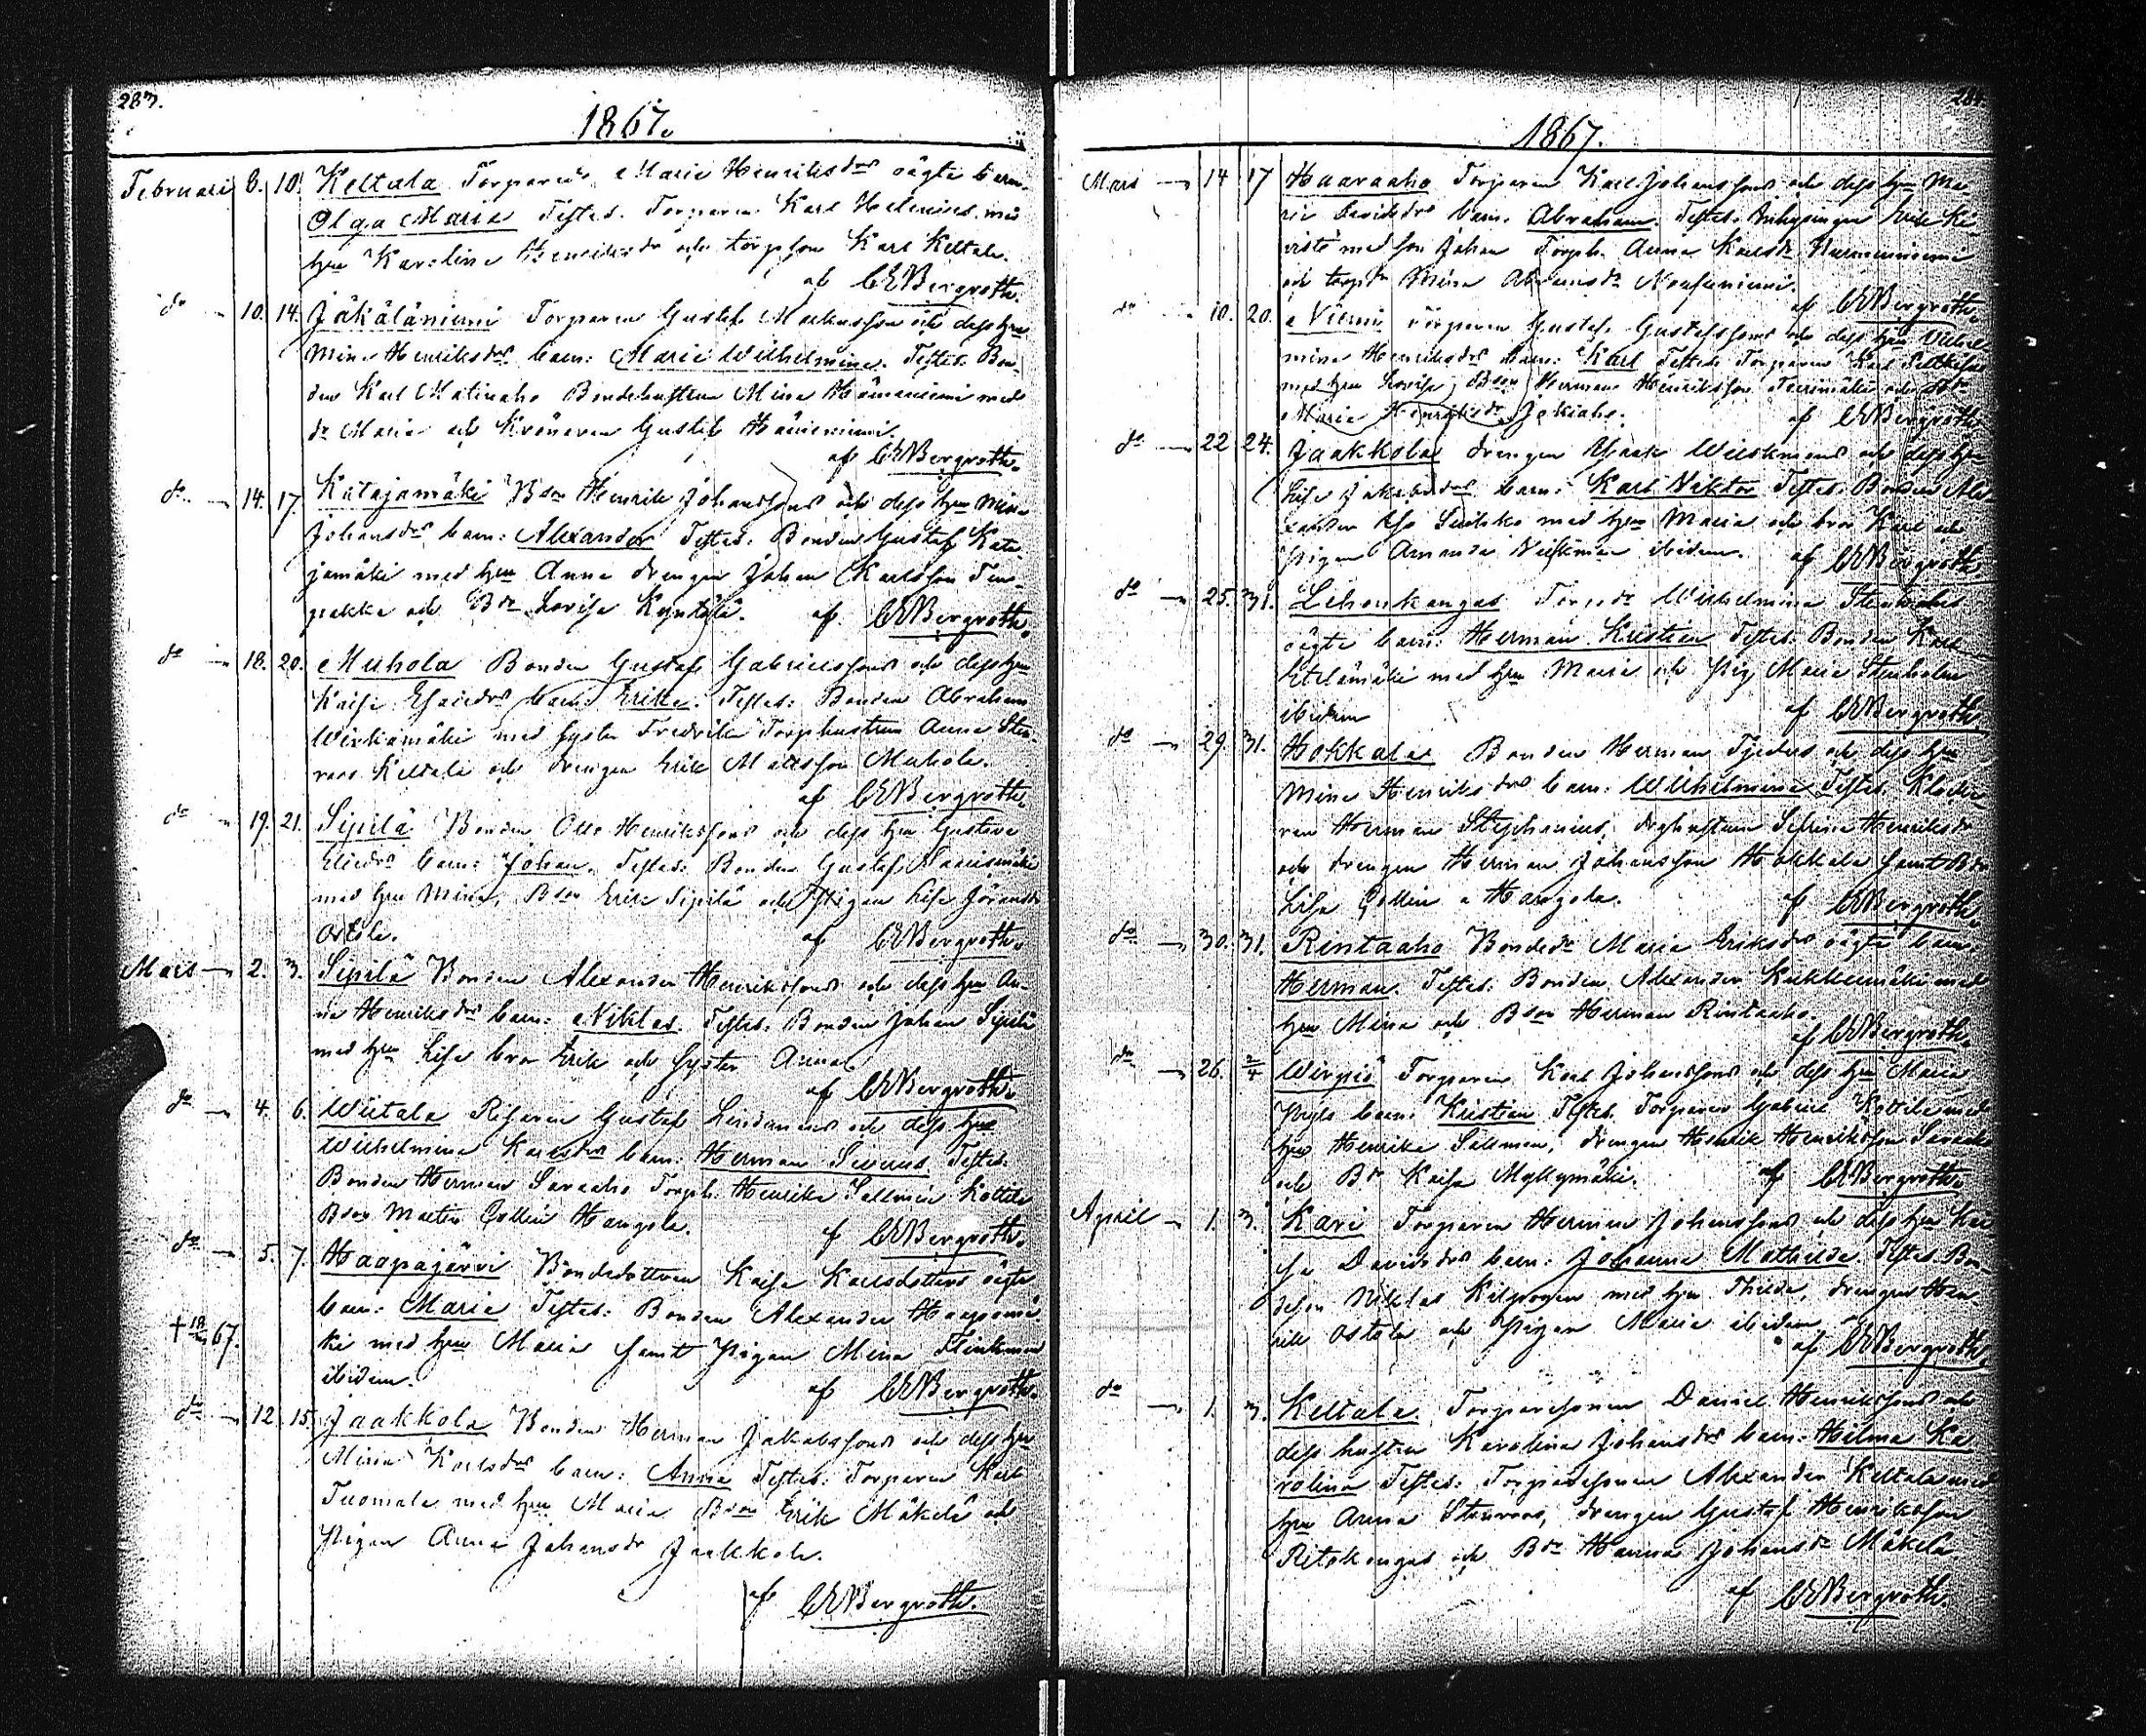 283.
1867.
Februari 8. 10. Keltala Torparedr Maria Henriksdrs oägta barn
Olga Maria Testes: Torparen Karl Helenius med
hru Karolina Henriksdr och torpson Karl Keltala.
af CEBergroth.
do 10. 14. Jäkäläniemi Torparen Gustaf och dess hru
Mina Henriksdrs barn: Maria Wilhelmina. Testes: Bon-
den Karl Matinaho Bondehustrun Mina Hänniniemi med
dr Maria och Gustaf Hänniniemi.
af CEBergroth.
do 14. 17. Katajamäki Bson Henrik Johanssons och dess hru Mina
Johansdrs barn: Alexander Testes: Bonden Gustaf Kata-
jamäki med hru Anna drengen Johan Karlsson Ten-
pakka och Bdr Lovisa
af CEBergroth.
do 18. 20. Muhola Bonden Gustaf Gabrielssons och dess hru
Kaisa Esaiedrs barn: Erika. Testes: Bonden Abraham
Wirkamäki med syster Fredrika Torphustrun Anna Sten-
roos Keltala och drengen Erik Mattsson Muhola.
af CEBergroth.
do 19. 21. Sipilä Bonden Otto Henrikssons och dess hru Gustava
Eliedrs barn: Johan. Testes: Bonden Gustaf
med hru Mina, Bson Erik Sipilä och Pigan Lisa Göransdr
Ostola.
af CEBergroth.
Mars 2. 3. Sipilä Bonden Alexander Henrikssons och dess hru An-
na Henriksdrs barn: Niklas. Testes: Bonden Johan Sipilä
med hru Lisa bror Erik och syster Anna.
af CEBergroth.
do 4. 6. Wiitala Gustaf och dess hru
Wilhelmina Karlsdrs barn: Herman Testes:
Bonden Herman Savaaho Torph. Henrika Sallmén Kottila
Bson Matts Gollin Hangola.
af CEBergroth.
do 5. 7. Haapajärvi Bondedottren Kaisa Karlsdotters oägta
barn: Maria Testes: Bonden Alexander Haapamä-
† 18/ 67. ki med hru Maria samt Pigan Mina Flinkman
ibidem.
af CEBergroth.
do 12. 15. Jaakkola Bonden Herman Jakobssons och dess hru
Mina Karlsdrs barn: Anna Testes: Torparen Karl
Tuomala med hru Maria Bson Erik Mäkelä och
Pigan Anna Johansdr Jaakkola.
af CEBergroth.
284.
1867.
Mars 14 17 Haaraaho Torparen Karl Johanssons och dess hru Ma-
ria Davidsdrs barn: Abraham. Testes: Inhysingen Erik Ki-
visto med son Johan Torph. Anna Karlsdr Nurmenniemi
och torpdr Mina Abramsdr
af CEBergroth.
do 10. 20. Niemi torparen Gustaf Gustafssons och dess hru Wilhel-
mina Henriksdrs barn: Karl Testes: Torparen Karl
med hru Lovisa, Bson Herman Henriksson och Bdr
Maria Henriksdr Jokiaho.
af CEBergroth.
do 22 24. Jaakkola drengen Isaak Wiikmans och dess hru
Lisa Jakobsdrs barn: Karl Viktor Testes: Bonden Ale-
xander med hru Maria och bror Karl och
Pigan Amanda ibidem.
af CEBergroth.
do 25. 31. Lehonkangas Torpdr Wilhelmina Stenholms
oägta barn: Herman Kristian Testes: Bonden Karl
Etelämäki med hru Maria och Pig. Maria Stenholm
ibidem
af CEBergroth.
do 29. 31. Hokkala Bonden Herman Tjeders och dess hru
Mina Henriksdrs barn: Wilhelmina Testes: Klocka-
ren Herman Stephanius, Serina Henriksdr
och drengen Herman Johansson Hokkala samt Bdr
Lisa Gollin Hangola.
af CEBergroth.
do 30. 31. Rintaaho Bondedr Maria Eriksdrs oägta barn
Herman. Testes: Bonden Alexander Kukkumäki med
hru Mina och Bson Herman Rintaaho.
af CEBergroth.
do 26. 2/4 Wirpiö Torparen Karl Johanssons och dess hru Maria
barn: Kristian Testes: Torparen Gabriel Kottila med
hru Henrika Sallmén, drengen Henrik Henriksson Savaaho
och Bdr Kaisa Myllymäki.
af CEBergroth.
April 1. 3. Kari Torparen Herman Johanssons och dess hru Kai-
sa Davidsdrs barn: Johanna Mathilda. Testes: Bon-
deson Niklas Kilponen med hru Thilda, drengen Hen-
rik Ostola och Pigan Maria ibidem
af CEBergroth.
do 1. 3. Keltala Torparesonen Daniel Henrikssons och
dess hustru Karolina Johansdrs barn: Hilma Ka-
rolina Testes: Torparesonen Alexander Keltala med
hru Anna Stenroos, drengen Gustaf Henriksson
Ritokangas och Bdr Hanna Johansdr Mäkelä
af CEBergroth.